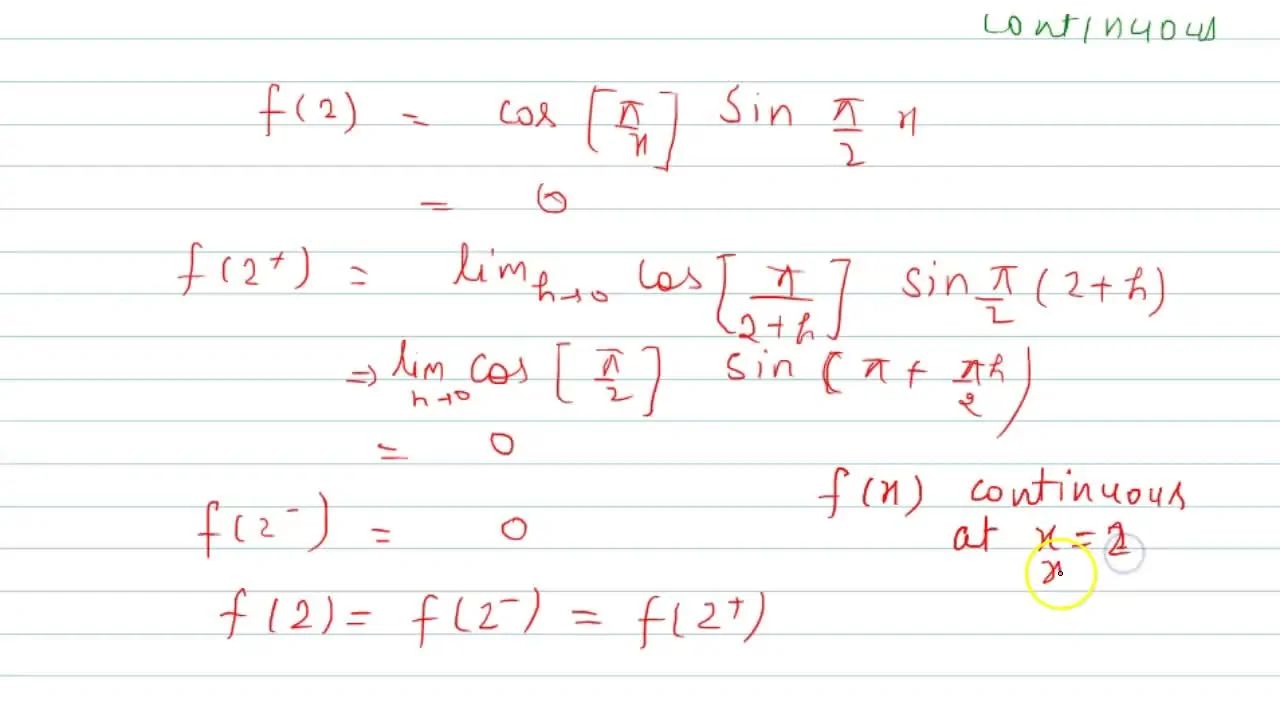 continuous
f(2) = cos [π/x] sin π/2 x
= 0
f(2⁺) = lim h→0 cos [π/(2+h)] sin π/2 (2+h)
⇒ lim h→0 cos [π/2] sin (π + πh/2)
= 0
f(x) continuous
f(2⁻) = 0
at x = 2
x
f(2) = f(2⁻) = f(2⁺)